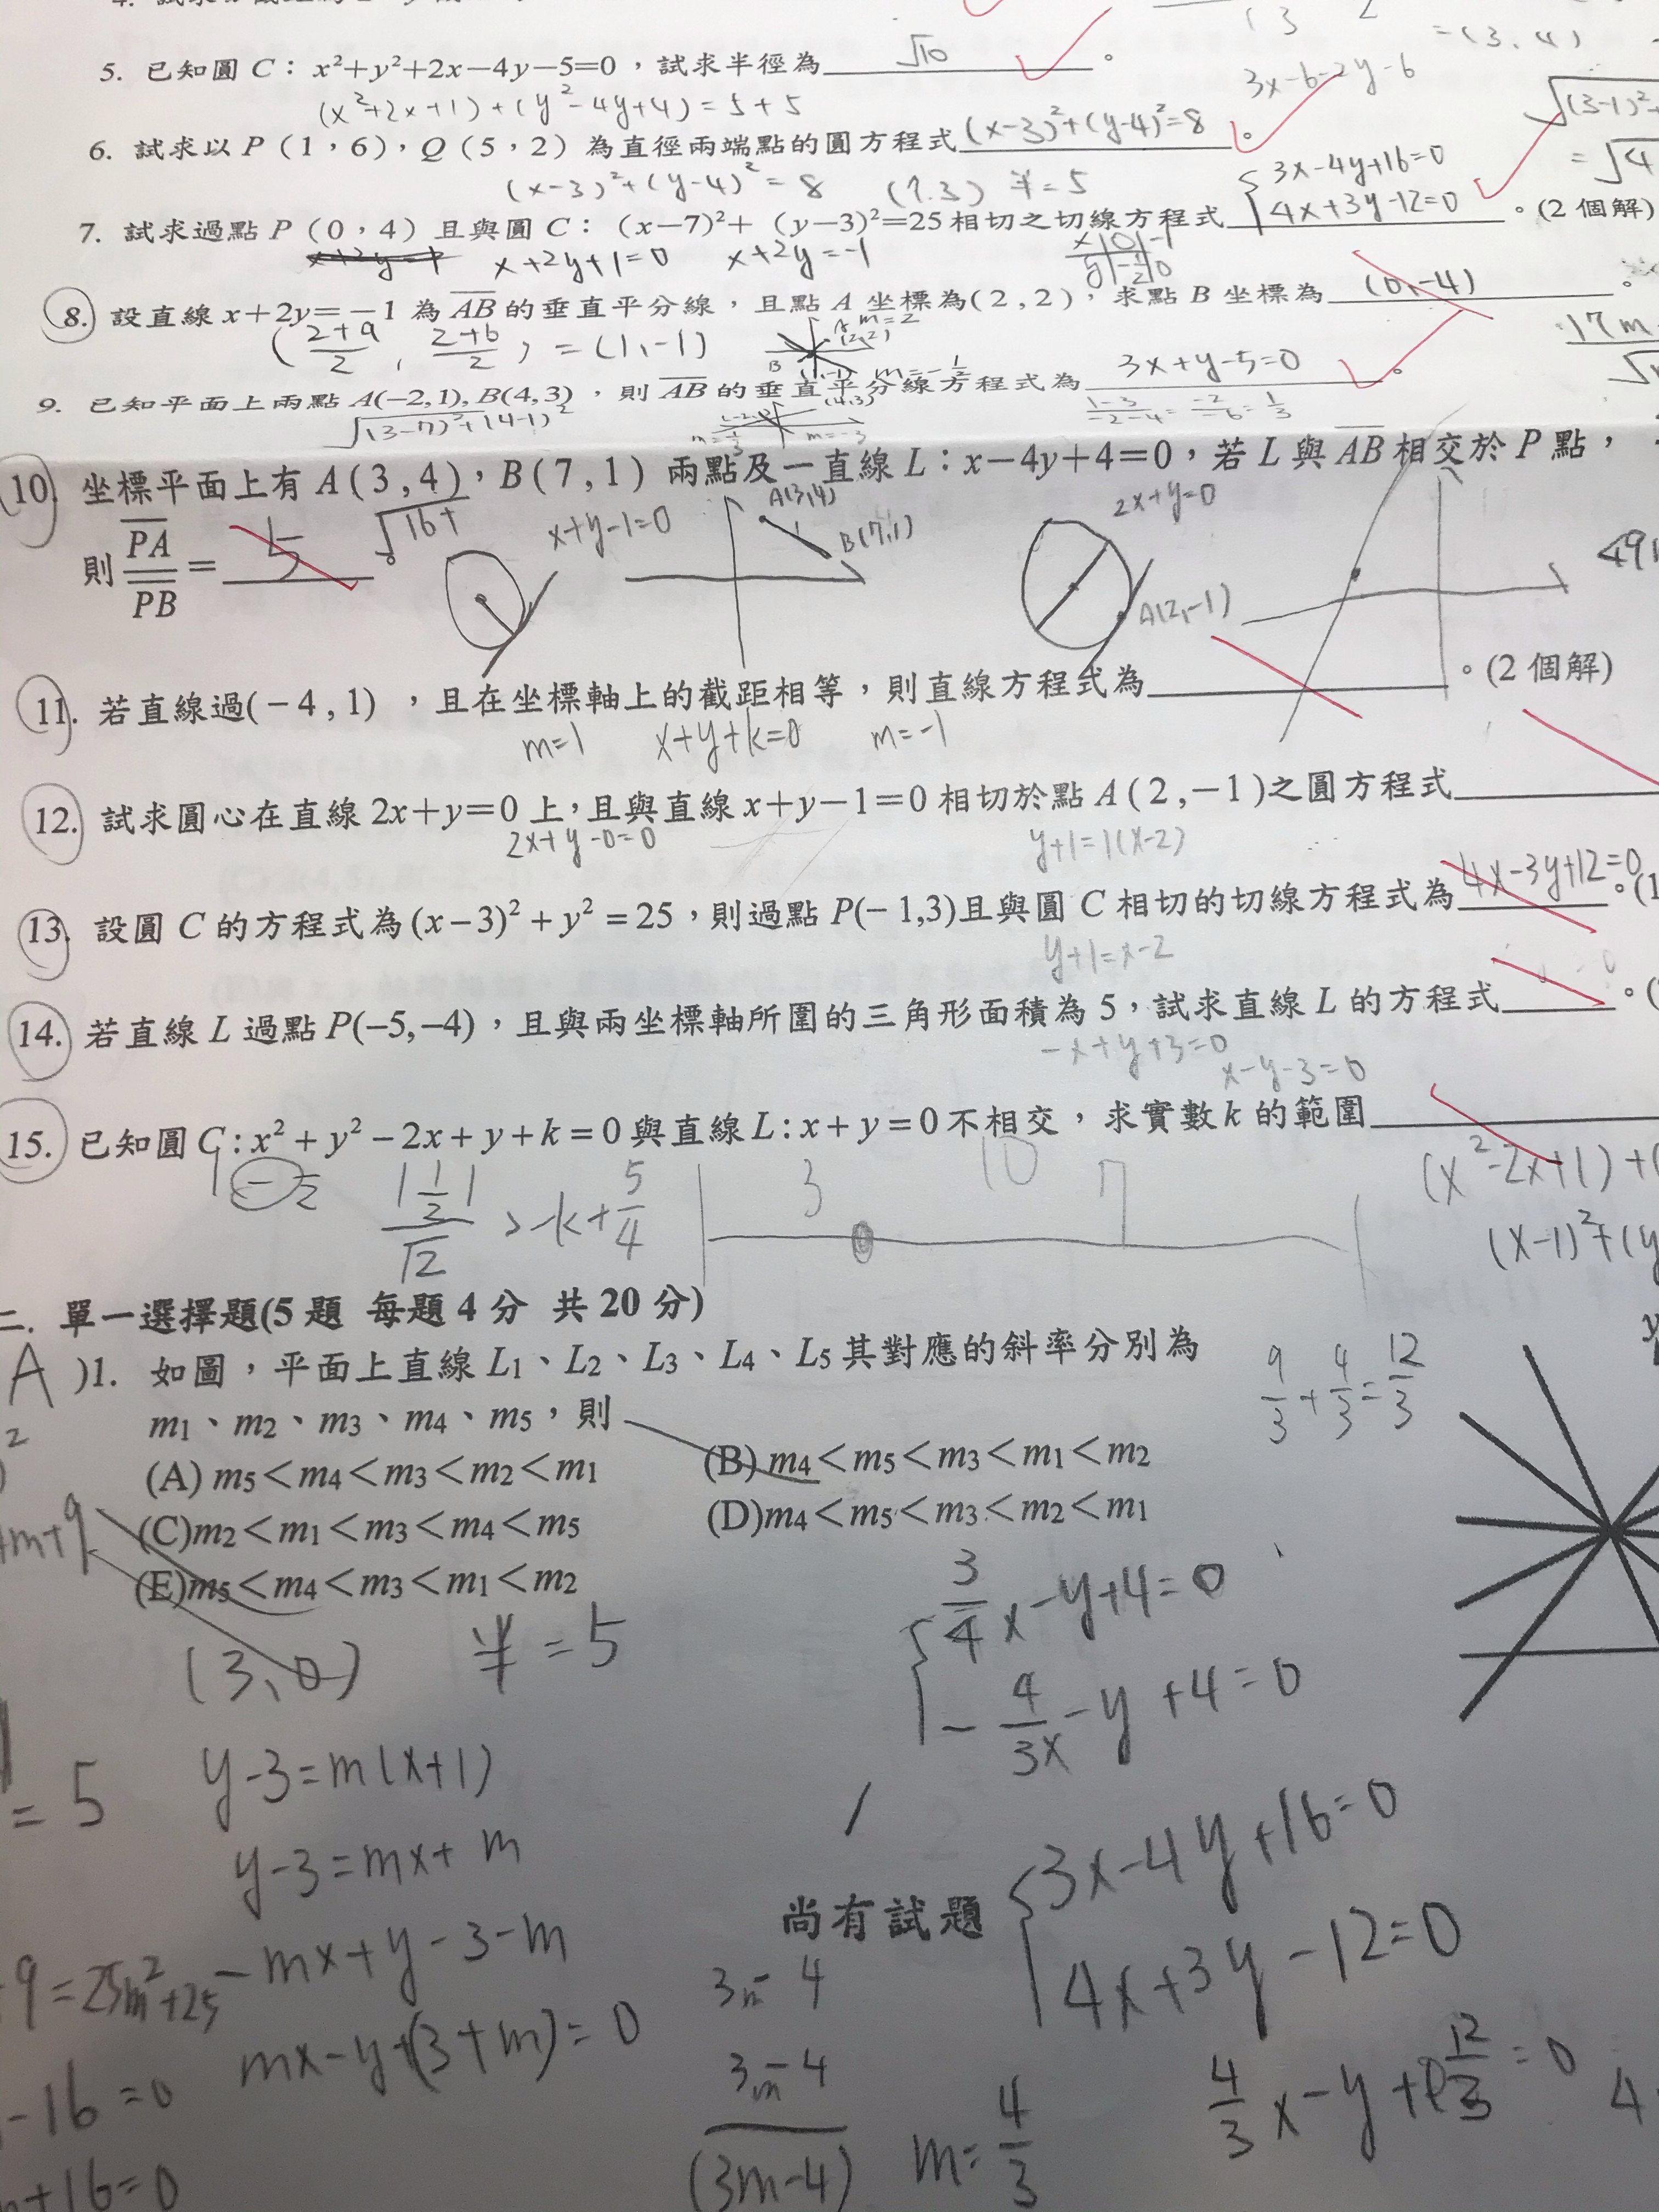 5. 已知圓 C：x²+y²+2x−4y−5=0，試求半徑為 √10 。
(x²+2x+1)+(y²-4y+4)=5+5
=(3,4)
3x-6-2y-6
6. 試求以 P（1，6），Q（5，2）為直徑兩端點的圓方程式 (x-3)²+(y-4)²=8 。
(x-3)²+(y-4)²=8 (7.3) 半=5
3x-4y+16=0
7. 試求過點 P（0，4）且與圓 C：（x−7)²+（y−3)²=25 相切之切線方程式 4x+3y-12=0 。(2 個解)
x+2y+1=0 x+2y=-1
8. 設直線 x+2y=−1 為 AB 的垂直平分線，且點 A 坐標為(2,2)，求點 B 坐標為 (0,-4) 。
(2+a/2, 2+b/2) = (1,-1) A m=2 (2,2) B (1,-1) m=-1/2
9. 已知平面上兩點 A(−2,1), B(4,3)，則 AB 的垂直平分線方程式為 3x+y-5=0 。
√(3-7)²+(4-1)² 1-3/-2-4 = -2/-6 = 1/3
10. 坐標平面上有 A(3,4)，B(7,1) 兩點及一直線 L：x−4y+4=0，若 L 與 AB 相交於 P 點，
則 PA/PB = 5 。 √16+ x+y-1=0 A(3,4) B(7,1) 2x+y=0 A(2,-1)
11. 若直線過(−4,1) ，且在坐標軸上的截距相等，則直線方程式為 。(2 個解)
m=1 x+y+k=0 m=-1
12. 試求圓心在直線 2x+y=0 上，且與直線 x+y−1=0 相切於點 A(2,−1)之圓方程式
2x+y-0=0 y+1=1(x-2)
13. 設圓 C 的方程式為(x−3)²+y²=25，則過點 P(−1,3)且與圓 C 相切的切線方程式為 4x-3y+12=0 。(1
y+1=x-2
14. 若直線 L 過點 P(–5,–4)，且與兩坐標軸所圍的三角形面積為 5，試求直線 L 的方程式 。(
-x+y+3=0
x-y-3=0
15. 已知圓 C:x²+y²−2x+y+k=0 與直線 L:x+y=0 不相交，求實數 k 的範圍
1 -1/2 |1/2|/√2 > -k+5/4 3 10 7
(x²-2x+1)+(
(x-1)²+(y
二. 單一選擇題(5 題 每題 4 分 共 20 分)
A )1. 如圖，平面上直線 L1、L2、L3、L4、L5 其對應的斜率分別為
9/3+4/3=12/3
m1、m2、m3、m4、m5，則
(A) m5＜m4＜m3＜m2＜m1 (B) m4＜m5＜m3＜m1＜m2
(C)m2＜m1＜m3＜m4＜m5 (D)m4＜m5＜m3＜m2＜m1
(E)m5＜m4＜m3＜m1＜m2
3/4x-y+4=0
(3,0) 半=5
-4/3x-y+4=0
=5 y-3=m(x+1)
y-3=mx+m
3x-4y+16=0
尚有試題
4x+3y-12=0
9=25m²+25 -mx+y-3-m
3m-4
mx-y+(3+m)=0
-16=0
3m-4
(3m-4) m=4/3
+16=0